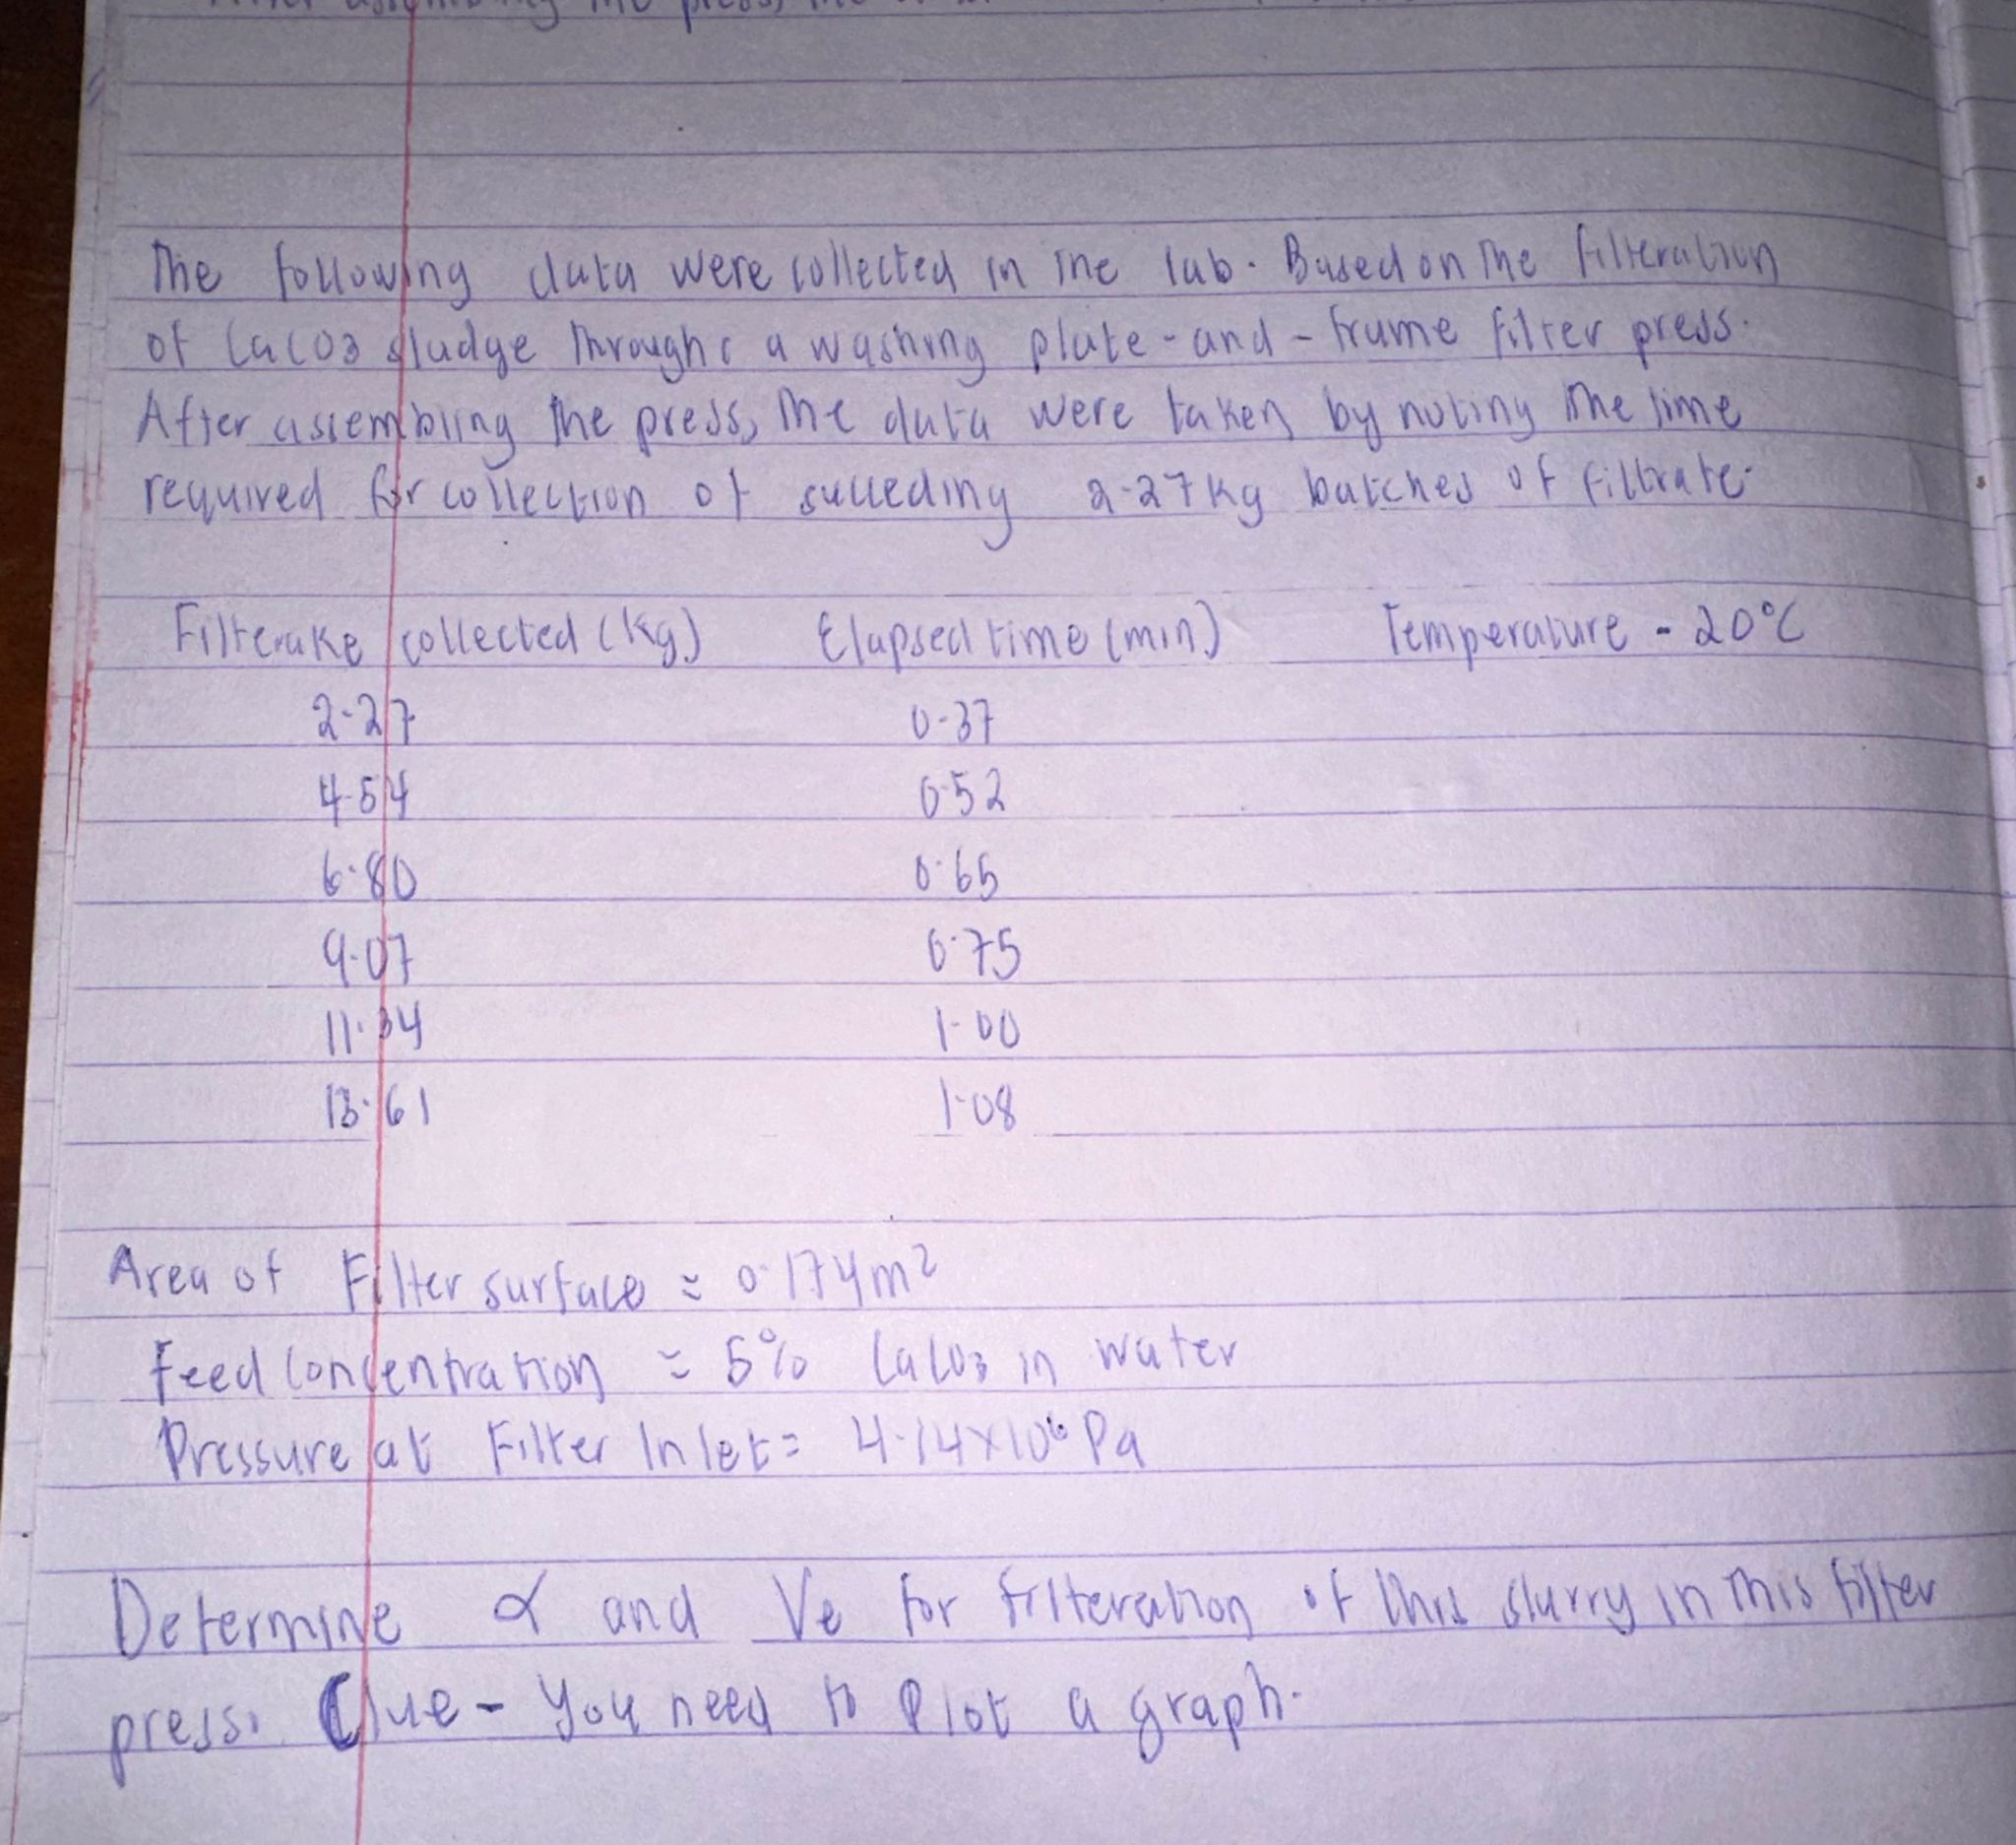 The following data were collected in the lab. Based on the filteration
of CaCO3 sludge through a washing plate-and-frame filter press.
After assembling the press, the data were taken by noting the time
required for collection of succeding 2.27kg batches of filtrate.
Filtercake collected (kg) Elapsed time (min) Temperature - 20°C
2.27 0.37
4.54 0.52
6.80 0.65
9.07 0.75
11.34 1.00
13.61 1.08
Area of Filter surface = 0.174m²
Feed Concentration = 5% CaCO3 in water
Pressure at Filter Inlet = 4.14×10⁶ Pa
Determine α and Ve for filteration of this slurry in this filter
press. Clue - You need to Plot a graph.